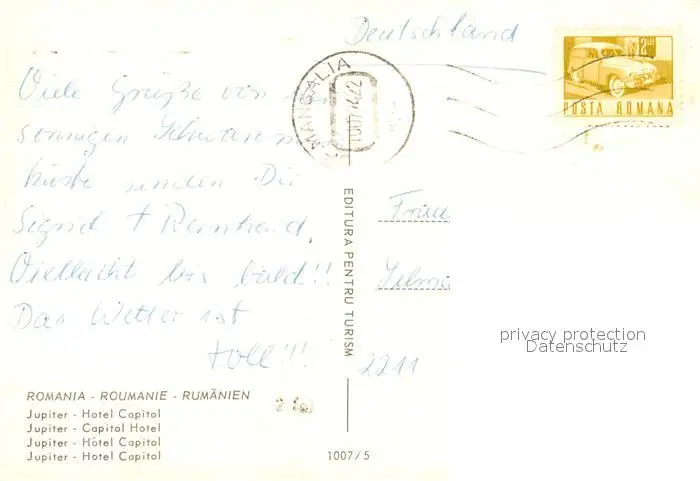 Deutschland
MANGALIA
POSTA ROMANA
Viele Grüße von
sonnigen
küste senden Dir
Sigrid + Reinhard.
Vielleicht bis bald!!
Das Wetter ist
toll!!!
EDITURA PENTRU TURISM
Frau
Selma
2211
privacy protection
Datenschutz
ROMANIA - ROUMANIE - RUMÄNIEN
Jupiter - Hotel Capitol
Jupiter - Capitol Hotel
Jupiter - Hôtel Capitol
Jupiter - Hotel Capitol
1007/5